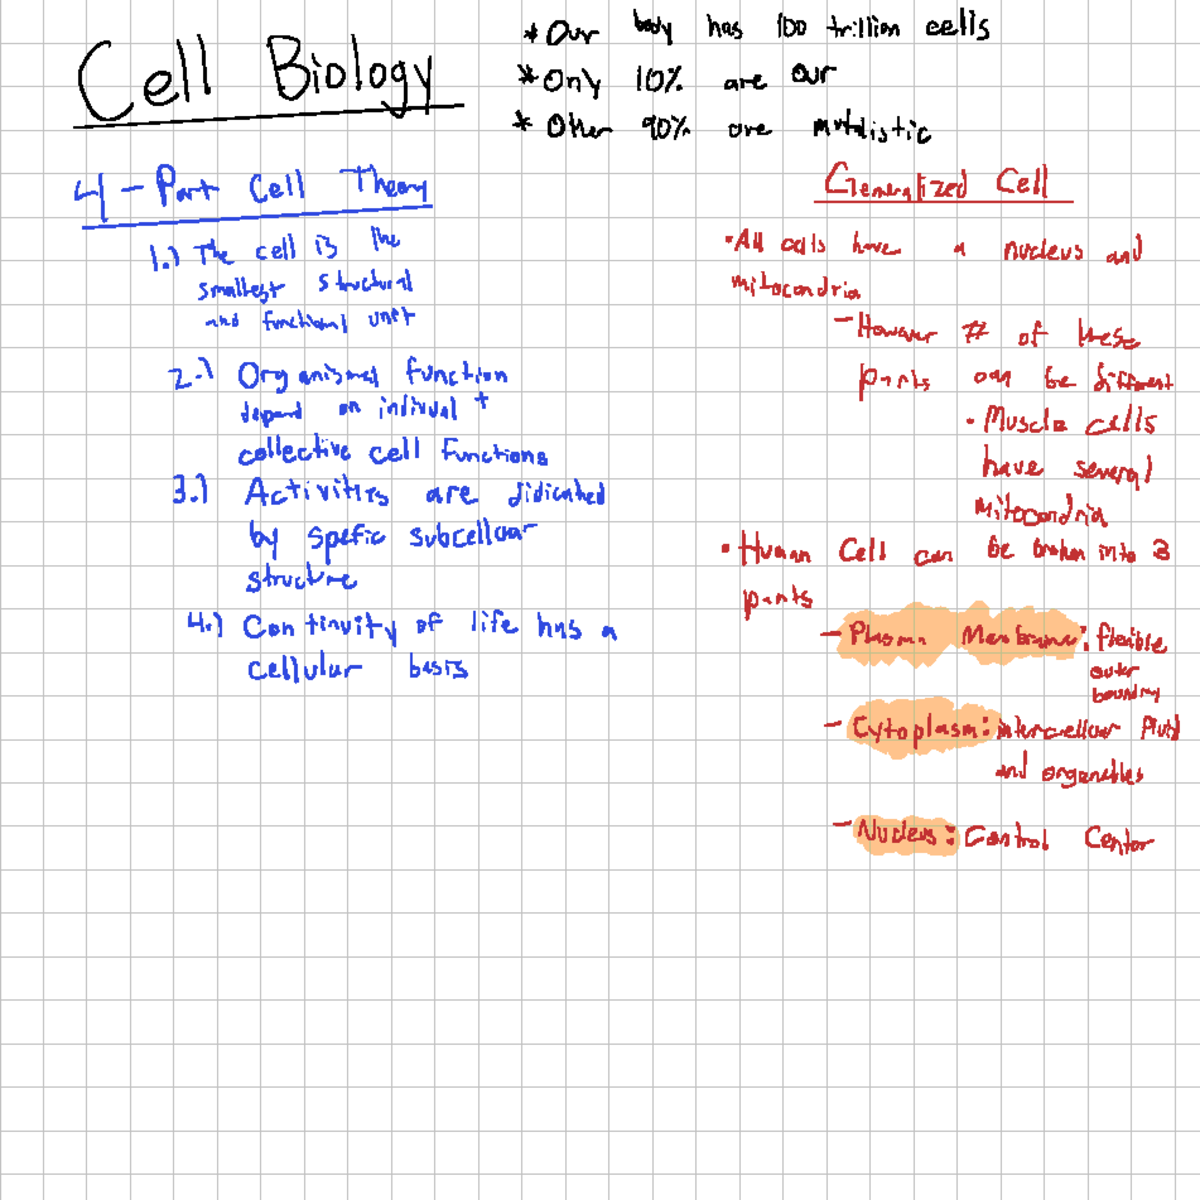 Cell Biology
* Our body has 100 trillion cells
* Only 10% are our
* Other 90% are mutalistic
4-Part Cell Theory
1.) The cell is the
smallest structural
and functional unit
2.) Organismal function
depend on indivual +
collective cell functions
3.) Activities are didicated
by spefic subcelluar
structure
4.) Continuity of life has a
cellular basis
Generalized Cell
• All cells have a nucleus and
mitocondria
- However # of these
parts can be different
• Muscle cells
have several
mitocondria
• Human Cell can be broken into 3
parts
- Plasma Membrane: flexible
outer
boundry
- Cytoplasm: intercelluar fluid
and organelles
- Nucleus: Control Center